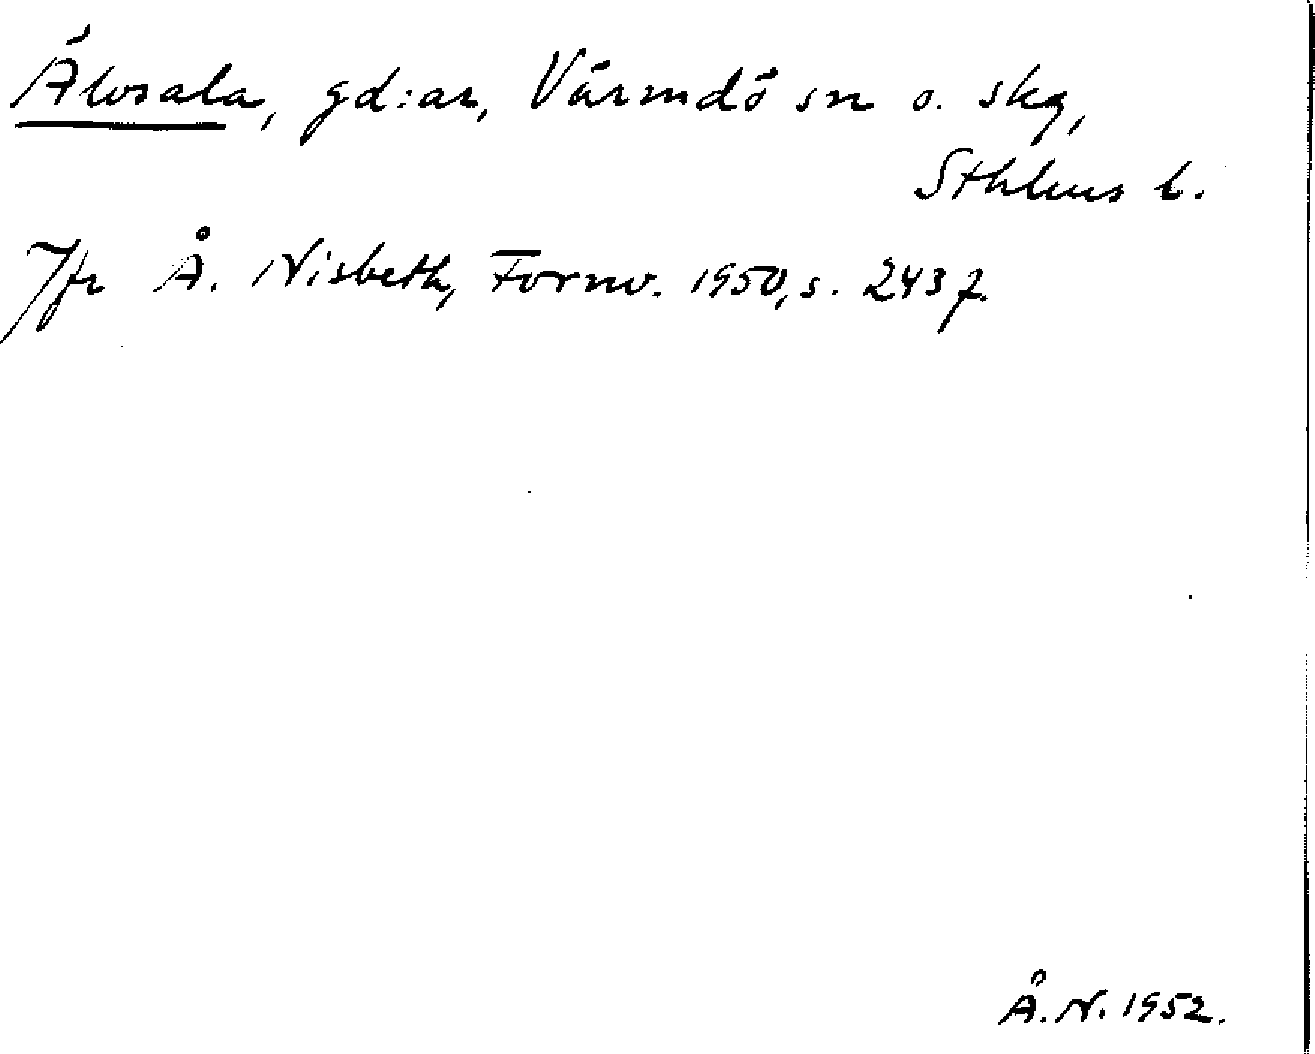 Älvsala, gd:ar, Värmdö sn o. skg,
Sthlms l.
Jfr Å. Nisbeth, Fornv. 1950, s. 243 f.
Å. N. 1952.